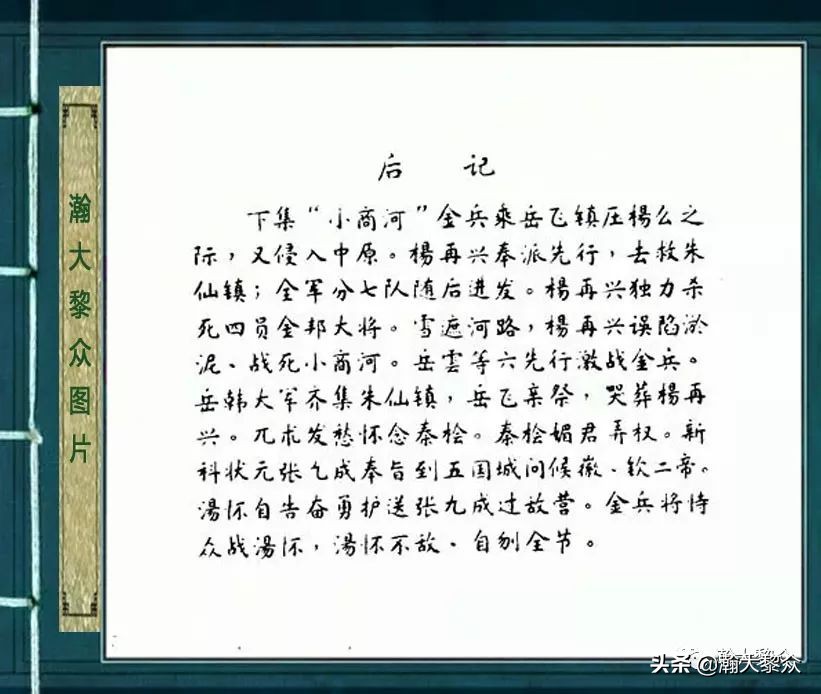 后记
下集“小商河”金兵乘岳飞镇压楊么之
际，又侵入中原。楊再兴奉派先行，去救朱
仙镇；全军分七队随后进发。楊再兴独力杀
死四员金邦大将。雪遮河路，楊再兴误陷淤
泥、战死小商河。岳雲等六先行激战金兵。
岳韩大军齐集朱仙镇，岳飞亲祭，哭葬楊再
兴。兀术发愁怀念秦桧。秦桧媚君弄权。新
科状元张九成奉旨到五国城问候徽、钦二帝。
湯怀自告奋勇护送张九成过敌营。金兵将恃
众战湯怀，湯怀不敌、自刎全节。
瀚大黎众图片
瀚大黎众
头条@瀚大黎众